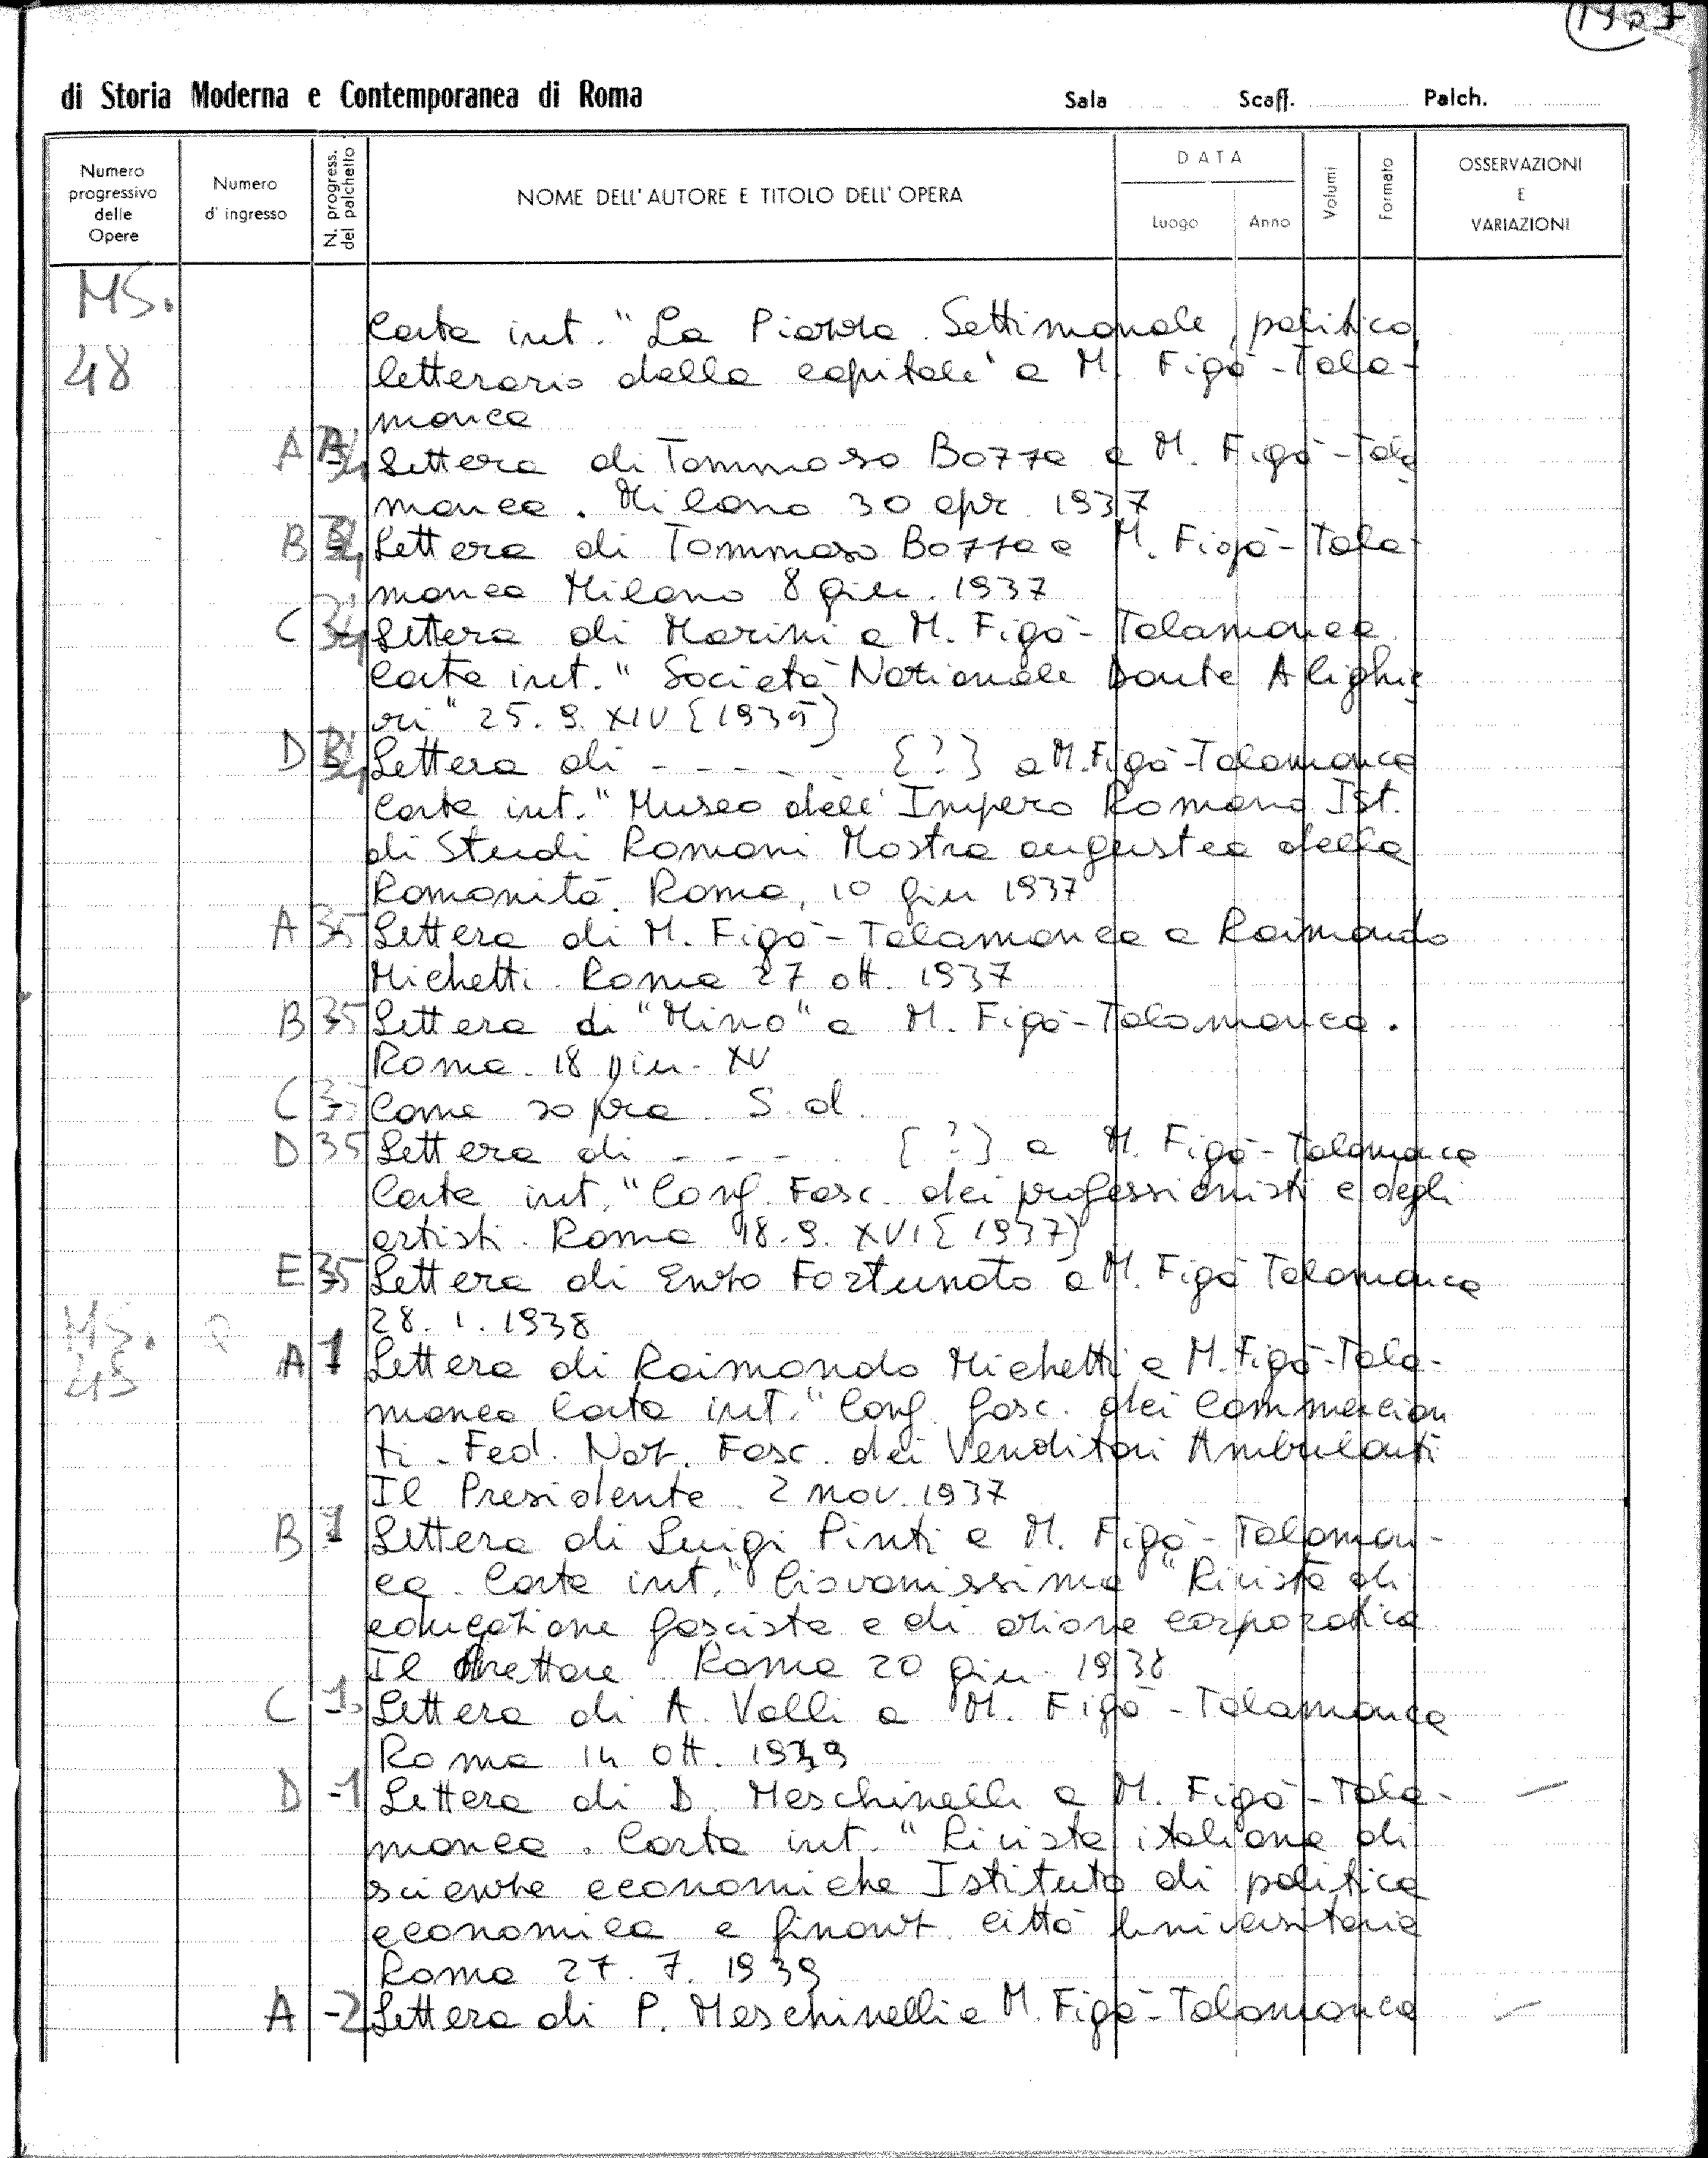 di Storia Moderna e Contemporanea di Roma Sala Scaff. Palch.
Numero progressivo delle Opere
Numero d' ingresso
N. progress. del palchetto
NOME DELL' AUTORE E TITOLO DELL' OPERA
DATA
Luogo Anno
Volumi
Formato
OSSERVAZIONI E VARIAZIONI
MS. Carta int. "La Piazza Settimanale politico
48 letterario della capitale" a M. Figà-Tala-
manca
A 34 Lettera di Tommaso Bozza a M. Figà-Tala
manca. Milano 30 apr. 1937
B 34 Lettera di Tommaso Bozza a M. Figà-Tala-
manca Milano 8 giu. 1937
C 34 Lettera di Marini a M. Figà-Talamanca
Carta int. "Società Nazionale Dante Alighie
ri" 25. 9. XIV [1935]
D 34 Lettera di ------ [?] a M. Figà-Talamanca
Carta int. "Museo dell' Impero Romano Ist.
di Studi Romani Mostra augustea della
Romanità. Roma, 10 giu 1937
A 35 Lettera di M. Figà-Talamanca a Raimondo
Michetti. Roma 27 ott. 1937
B 35 Lettera di "Mino" a M. Figà-Talamanca.
Roma. 18 giu. XV
C 35 Come sopra. S. d.
D 35 Lettera di ---- [?] a M. Figà-Talamanca
Carta int. "Conf. Fasc. dei professionisti e degli
artisti. Roma 18. 9. XVI [1937]
E 35 Lettera di Enzo Fortunato a M. Figà Talamanca
28. 1. 1938
MS. A 1 Lettera di Raimondo Michetti a M. Figà-Tala-
manca Carta int. "Conf. fasc. dei Commercian
ti. Fed. Naz. Fasc. dei Venditori Ambulanti
Il Presidente. 2 nov. 1937
B 1 Lettera di Luigi Pinti a M. Figà-Talaman-
ca. Carta int. "Giovanissima" Rivista di
educazione fascista e di azione corporativa
Il Direttore". Roma 20 giu. 1938
C -1 Lettera di A. Valli a M. Figà-Talamanca
Roma 14 Ott.
D -1 Lettera di D. Meschinelli a M. Figà-Tala-
manca. Carta int. "Rivista italiana di
scienze economiche Istituto di politica
economica e finanz. città Universitaria
Roma 27. 7. 1939
A -2 Lettera di P. Meschinelli a M. Figà-Talamanca